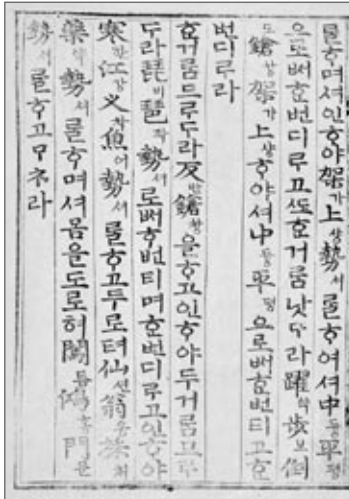 ᄅᆞᆯᄒᆞ며셔인ᄒᆞ야架가上샹勢셔ᄅᆞᆯᄒᆞ여셔中듕平평
으로ᄡᅥᄒᆞᆫ번디ᄅᆞ고ᄯᅩᄒᆞᆫ거룸낫ᄃᆞ라躍약步보倒도
鎗창架가上샹ᄒᆞ야셔中듕平평으로ᄡᅥᄒᆞᆫ번티고ᄒᆞᆫ
번디ᄅᆞ라
ᄒᆞᆫ거룸므ᄅᆞᄃᆞ라反반鎗창을ᄒᆞ고인ᄒᆞ야두거룸므ᄅᆞ
ᄃᆞ라琵비琶파勢셔로ᄡᅥᄒᆞᆫ번티며ᄒᆞᆫ번디ᄅᆞ고인ᄒᆞ야
寒한江강叉차魚어勢셔ᄅᆞᆯᄒᆞ고두로텨仙션翁옹採ᄎᆡ
藥약勢셔ᄅᆞᆯᄒᆞ며셔몸을도로혀闖틈鴻홍門문
勢셔ᄅᆞᆯᄒᆞ고ᄆᆞᄎᆞ라